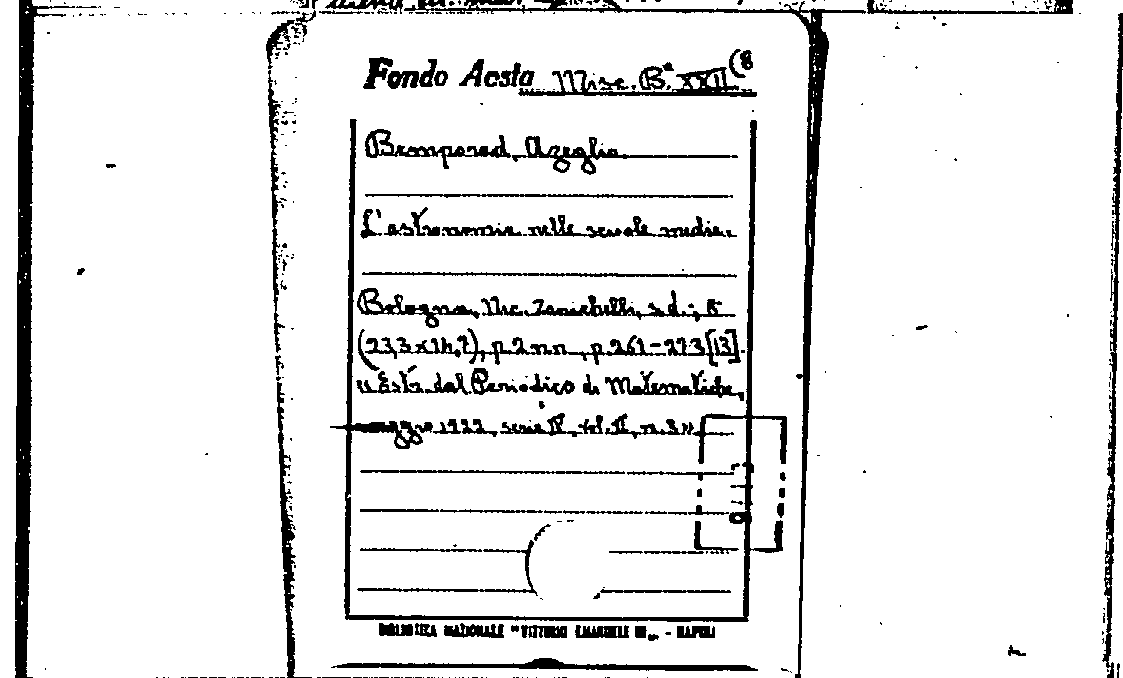 Fondo Aosta Misc. Bª XXII (8
Bemporad, Azeglio.
L'astronomia nelle scuole medie.
Bologna, Nic. Zanichelli, s.d.; 8°
(23,3x14,2), p. 2 nn, p. 261-273 [13].
"Estr. dal Periodico di Matematiche,
maggio 1922, serie IV, vol. II, n. 3"
BIBLIOTECA NAZIONALE "VITTORIO EMANUELE III" - NAPOLI